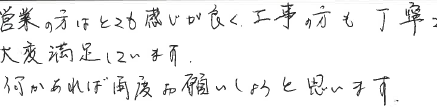 営業の方はとても感じが良く、工事の方も丁寧で
大変満足しています。
何かあれば再度お願いしようと思います。